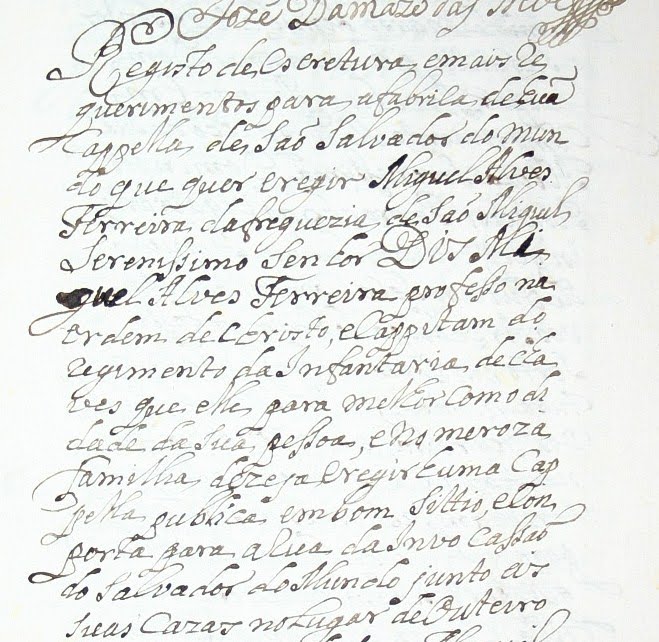 José Damazo das Neves
Registo de escretura, e mais re
querimentos para a fabrica de huã
Cappella de São Salvador do Mun
do que quer eregir Miguel Alves
Ferreira da freguezia de São Miguel
Serenissimo Senhor Dis Mi
guel Alves Ferreira professo na
Ordem de Christo, e Cappitam do
regimento da Infantaria de Cha
ves que elle para melhor como di
dade da sua pessoa, e No meroza
familia dezeja eregir huma Cap
pella publica em bom sittio, e Con
porta para a Rua da Invo Cassaõ
do Salvador do Mundo junto ás
suas Cazas no Lugar de Outeiro